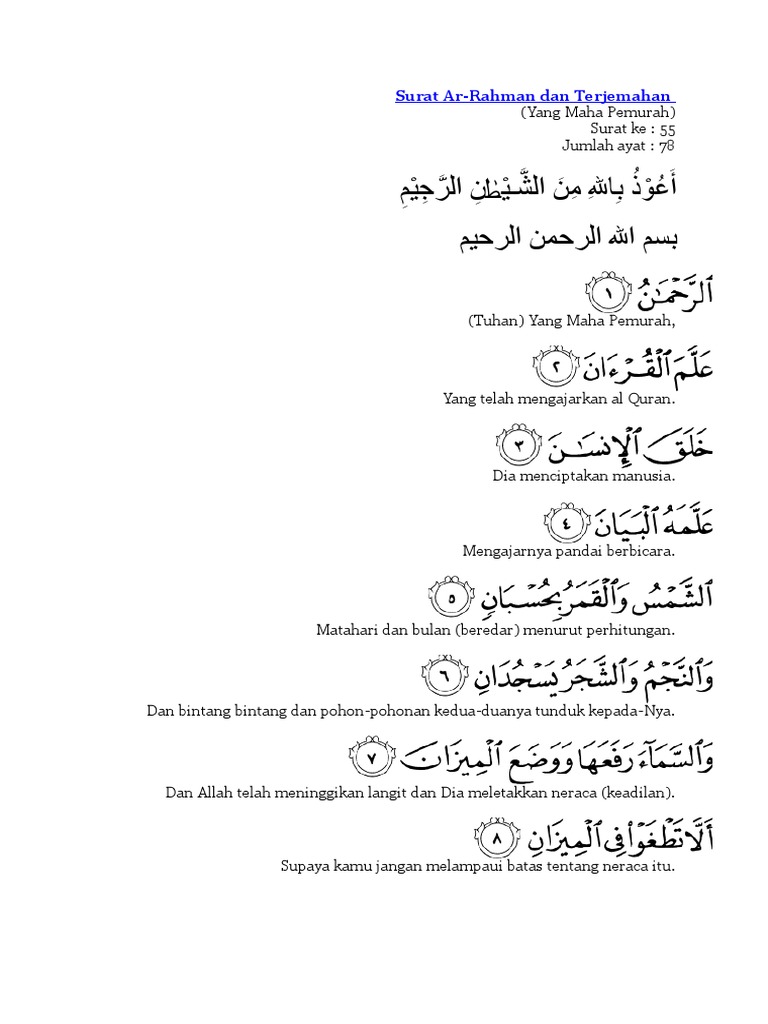 Surat Ar-Rahman dan Terjemahan
(Yang Maha Pemurah)
Surat ke : 55
Jumlah ayat : 78
أَعُوْذُ بِاللهِ مِنَ الشَّيْطٰنِ الرَّجِيْمِ
بسم الله الرحمن الرحيم
ٱلرَّحْمَـٰنُ ١
(Tuhan) Yang Maha Pemurah,
عَلَّمَ ٱلْقُرْءَانَ ٢
Yang telah mengajarkan al Quran.
خَلَقَ ٱلْإِنسَـٰنَ ٣
Dia menciptakan manusia.
عَلَّمَهُ ٱلْبَيَانَ ٤
Mengajarnya pandai berbicara.
ٱلشَّمْسُ وَٱلْقَمَرُ بِحُسْبَانٍ ٥
Matahari dan bulan (beredar) menurut perhitungan.
وَٱلنَّجْمُ وَٱلشَّجَرُ يَسْجُدَانِ ٦
Dan bintang bintang dan pohon-pohonan kedua-duanya tunduk kepada-Nya.
وَٱلسَّمَآءَ رَفَعَهَا وَوَضَعَ ٱلْمِيزَانَ ٧
Dan Allah telah meninggikan langit dan Dia meletakkan neraca (keadilan).
أَلَّا تَطْغَوْا۟ فِى ٱلْمِيزَانِ ٨
Supaya kamu jangan melampaui batas tentang neraca itu.